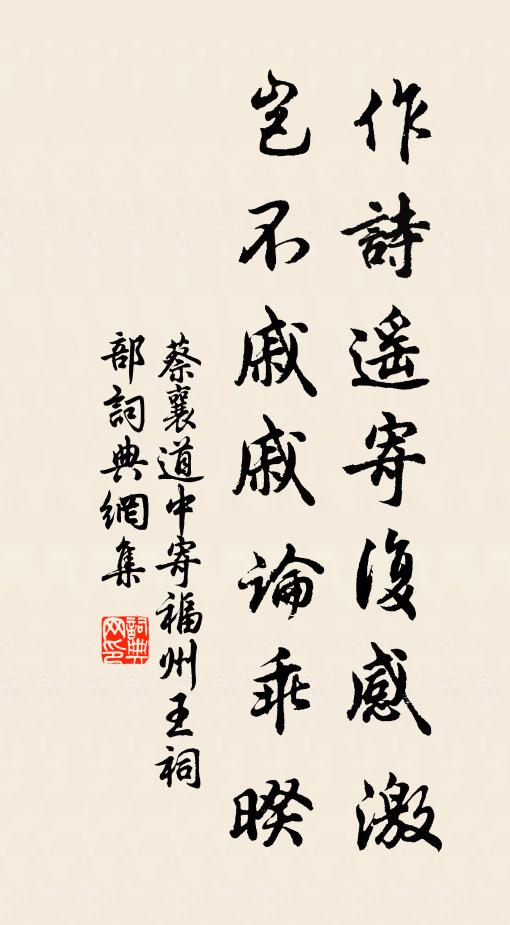 作詩遥寄復感激
豈不戚戚論乖睽
蔡襄道中寄福州王祠
部詞典網集
詞典
网印